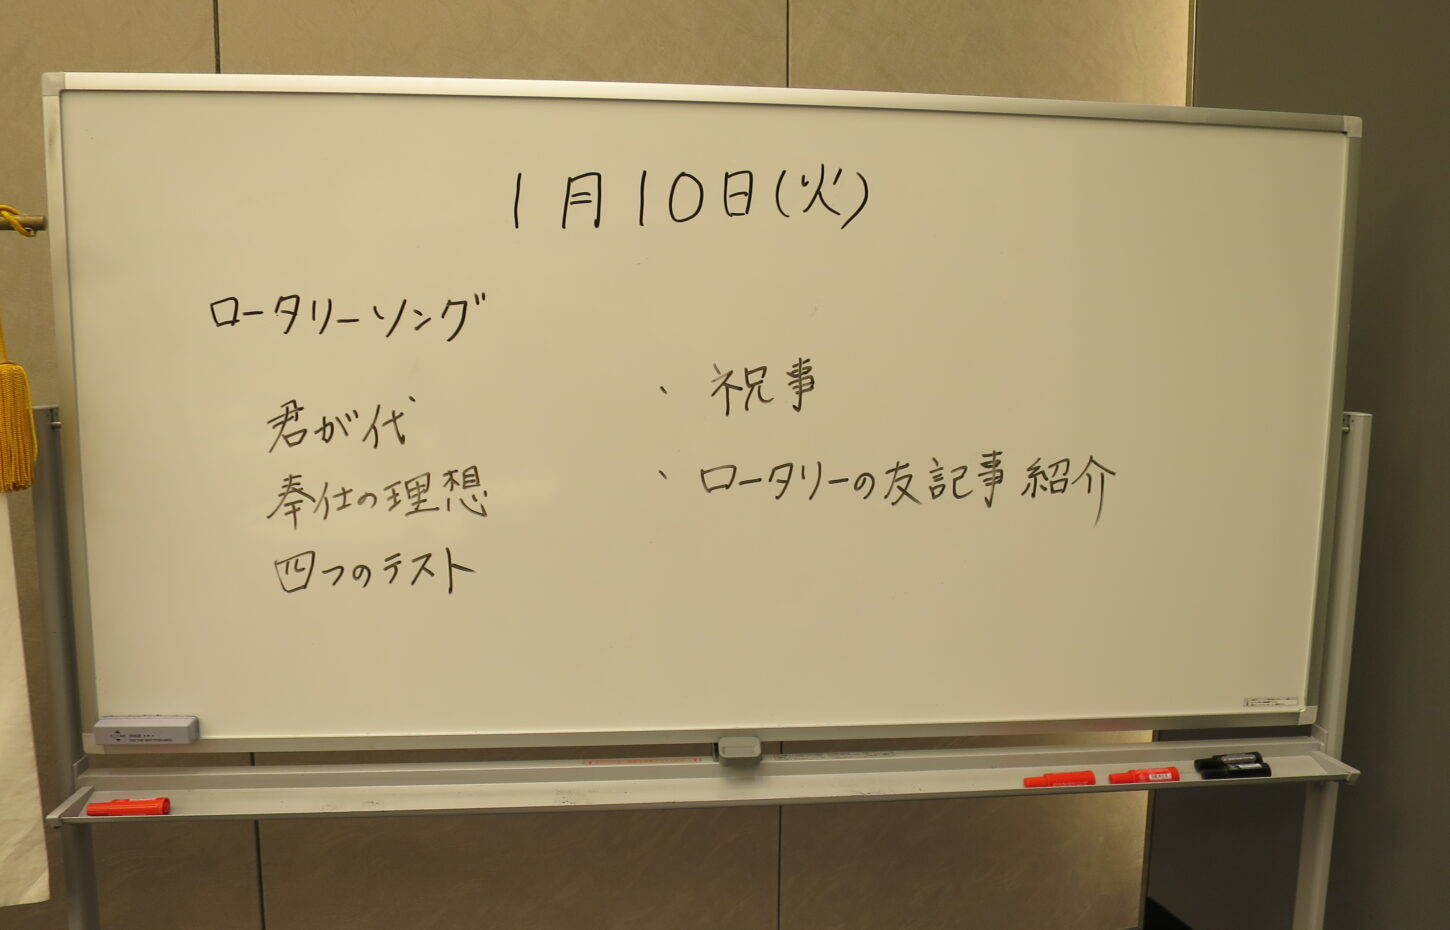 1月10日(火)
ロータリーソング
君が代
奉仕の理想
四つのテスト
、祝事
、ロータリーの友記事紹介